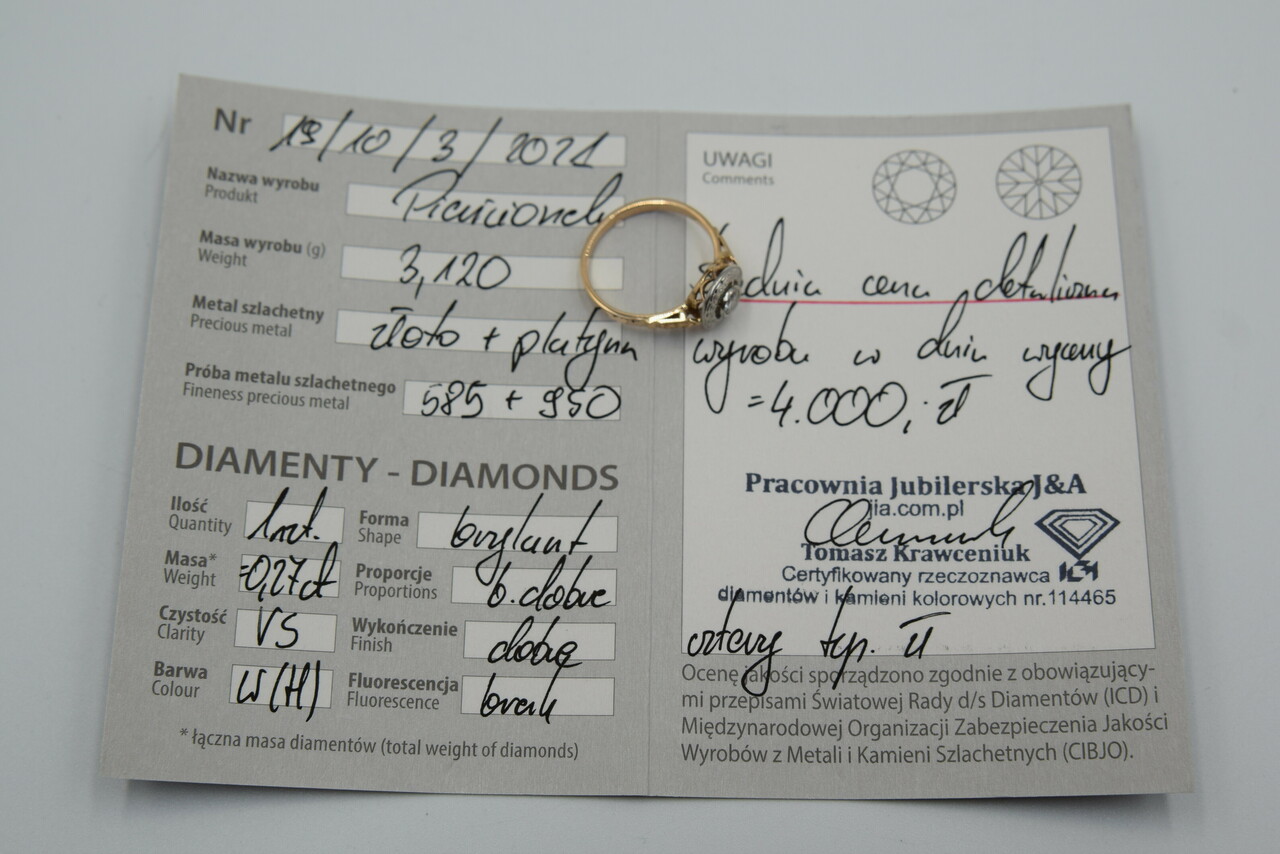 Nr 19/10/3/2021
Nazwa wyrobu Pierścionek
Produkt
Masa wyrobu (g) 3,120
Weight
Metal szlachetny złoto + platyna
Precious metal
Próba metalu szlachetnego 585 + 950
Fineness precious metal
DIAMENTY - DIAMONDS
Ilość 1szt. Forma brylant
Quantity Shape
Masa* =0,27ct Proporcje b.dobre
Weight Proportions
Czystość VS Wykończenie dobre
Clarity Finish
Barwa W(H) Fluorescencja brak
Colour Fluorescence
* łączna masa diamentów (total weight of diamonds)
UWAGI
Comments
cena detaliczna
wyrobu w dniu wyceny
=4.000,- zł
Pracownia Jubilerska J&A
jia.com.pl
Tomasz Krawceniuk
Certyfikowany rzeczoznawca
diamentów i kamieni kolorowych nr.114465
cztery tys. zł
Ocenę jakości sporządzono zgodnie z obowiązujący-
mi przepisami Światowej Rady d/s Diamentów (ICD) i
Międzynarodowej Organizacji Zabezpieczenia Jakości
Wyrobów z Metali i Kamieni Szlachetnych (CIBJO).